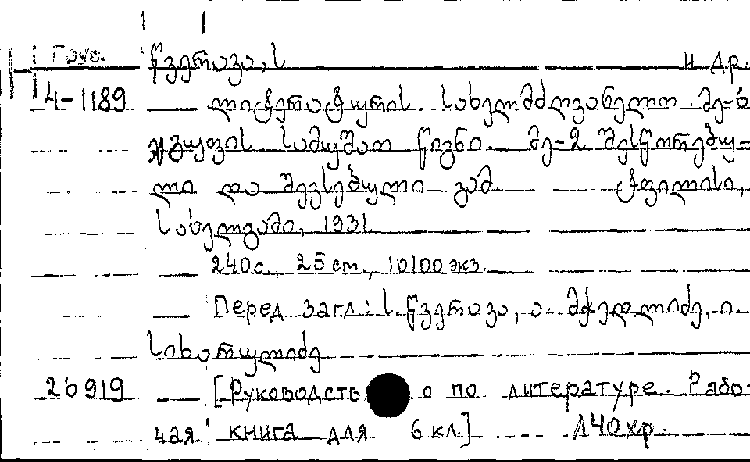 Груз. წვერავა, ს и др.
4-1189 — ლიტერატურის სახელმძღვანელო მე-6
ჯგუფის სამუშაო წიგნი. მე-2 შესწორებუ-
ლი და შევსებული გამ. ტფილისი,
სახელგამი, 1931
240с. 25см., 10100 экз.
Перед загл: ს. წვერავა, ა. მჭედლიძე, ი.
სიხარულიძე
26919 — [Руководство по литературе. Рабо-
чая книга для 6 кл.] Л40хр.